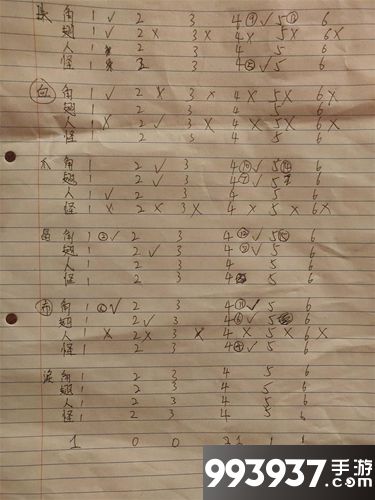 角 1 ✓ 2 3 4 ⑨ ✓ 5 ⑬ 6
翅 1 ✓ 2 X 3 X 4 X 5 X 6 X
人 1 2 3 4 5 6
怪 1 2 3 4 ⑤ ✓ 5 6
白 角 1 ✓ 2 X 3 X 4 X 5 X 6 X
翅 1 2 3 4 5 6
人 1 X 2 ✓ 3 X 4 X 5 X 6 X
怪 1 2 3 4 5 6
爪 角 1 2 ✓ 3 4 ⑩ ✓ 5 ⑭ 6
翅 1 2 ✓ 3 4 ⑦ ✓ 5 6
人 1 ✓ 2 3 4 5 6
怪 1 X 2 X 3 X 4 X 5 X 6 X
角 1 ③ ✓ 2 3 4 ⑫ ✓ 5 ⑮ 6
翅 1 2 ✓ 3 4 ✓ 5 6
人 1 2 3 4 5 6
怪 1 2 3 4 5 6
角 1 ✓ 2 3 4 ⑪ ✓ 5 6
翅 1 2 ✓ 3 4 ⑥ ✓ 5 6
人 1 X 2 X 3 X 4 X 5 X 6 X
怪 1 2 3 4 ✓ 5 6
角 1 2 3 4 5 6
翅 1 2 3 4 5 6
人 1 2 3 4 5 6
怪 1 2 3 4 5 6
1 0 0
993937.com
手游